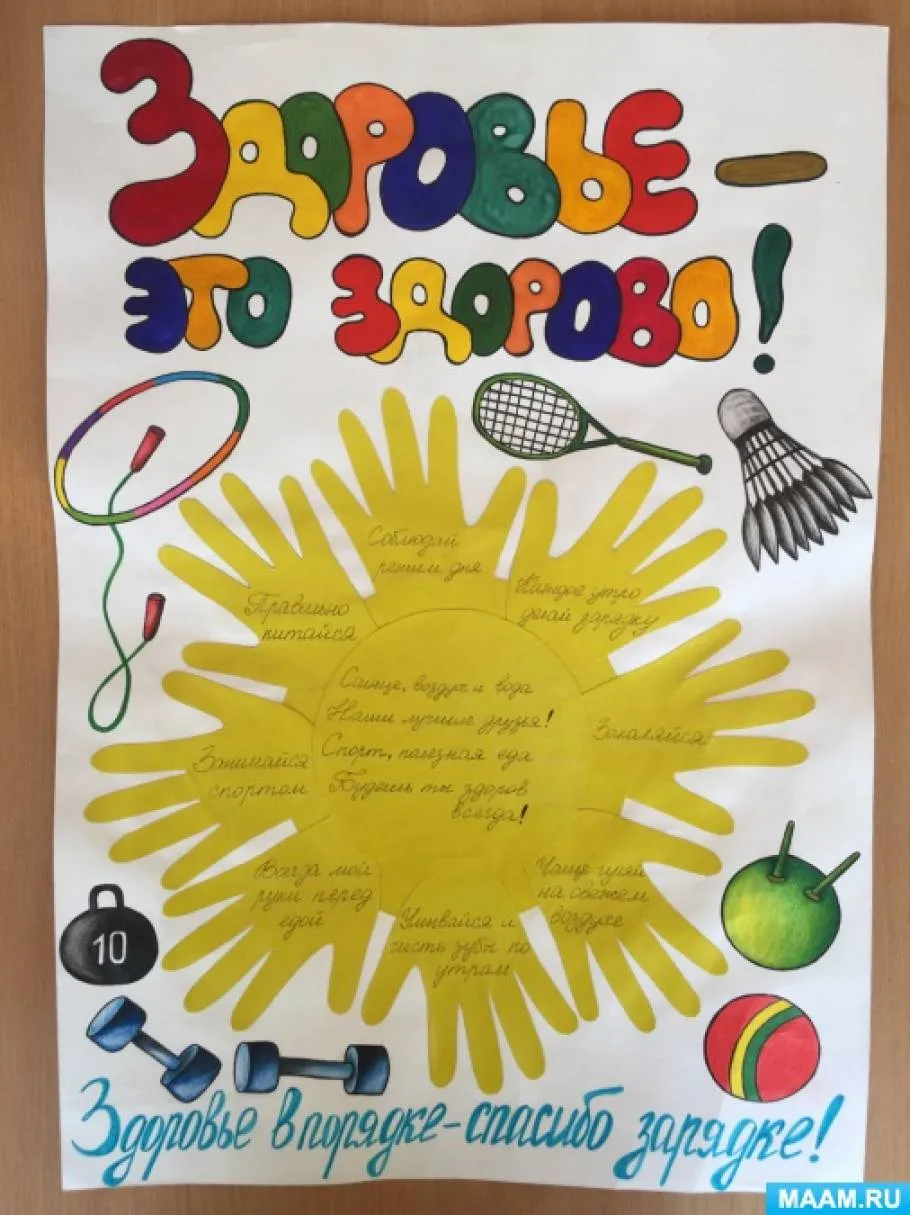 Здоровье –
это здорово!
Соблюдай
режим дня
Каждое утро
делай зарядку
Правильно
питайся
Закаляйся
Солнце, воздух и вода
Наши лучшие друзья!
Спорт, полезная еда
Будешь ты здоров
всегда!
Занимайся
спортом
Всегда мой
руки перед
едой
Умывайся и
чисть зубы по
утрам
Чаще гуляй
на свежем
воздухе
10
Здоровье в порядке - спасибо зарядке!
MAAM.RU